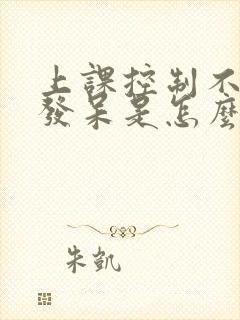 上課控制不
發呆是怎麼
朱凱